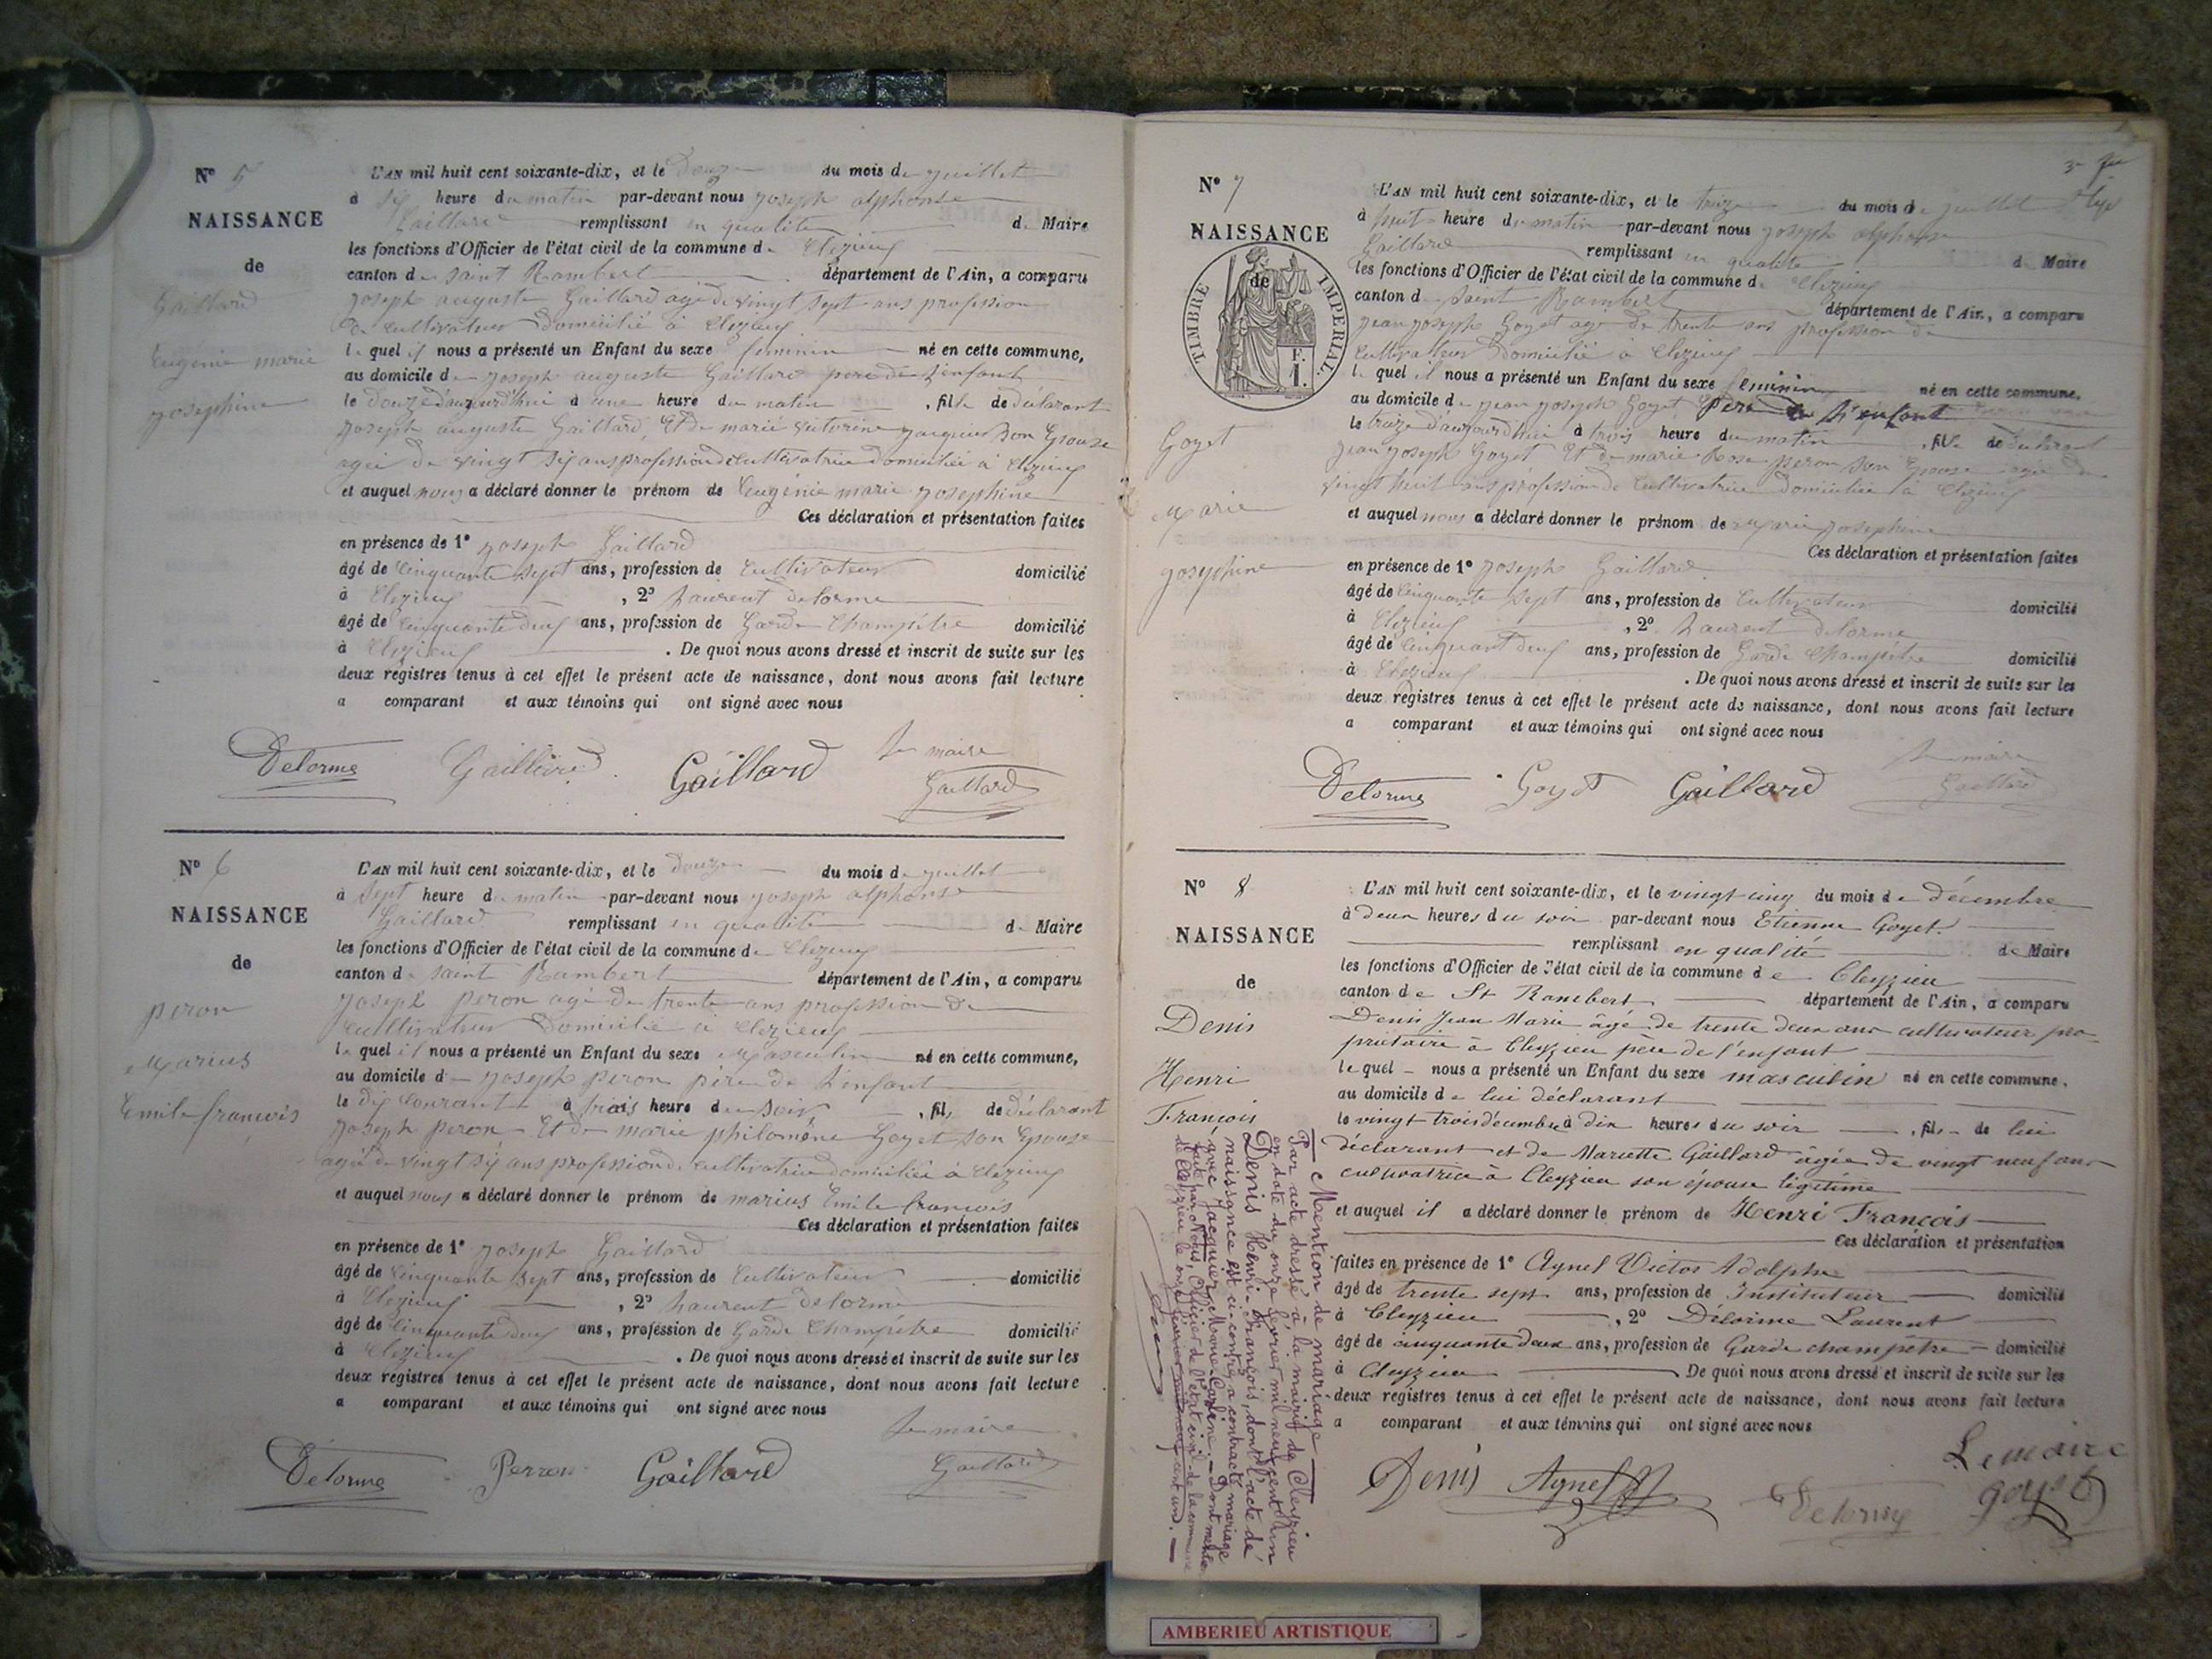 N° 5
NAISSANCE
de
Gaillard
Eugenie marie
josephine
L'AN mil huit cent soixante-dix, et le Douze du mois de juillet
à six heure du matin par-devant nous joseph alphonse
Gaillard remplissant en qualité de Maire
les fonctions d'Officier de l'état civil de la commune de Clezieux
canton de saint Rambert département de l'Ain, a comparu
joseph auguste Gaillard agé de vingt sept ans profession
de cultivateur Domicilié à Clezieux
lequel il nous a présenté un Enfant du sexe feminin né en cette commune,
au domicile de joseph auguste Gaillard pere de L'enfant
le douze d'aujourd'hui à une heure du matin, fille de déclarant
joseph auguste Gaillard, Et de marie victorine jacquier son Epouse
agée de vingt six ans profession de cultivatrice domiciliée à Clezieux
et auquel nous a déclaré donner le prénom de Eugénie marie josephine
Ces déclaration et présentation faites
en présence de 1° joseph Gaillard
âgé de Cinquante sept ans, profession de Cultivateur domicilié
à Clezieux, 2° Laurent Delorme
âgé de Cinquante deux ans, profession de Garde Champêtre domicilié
à Clezieux. De quoi nous avons dressé et inscrit de suite sur les
deux registres tenus à cet effet le présent acte de naissance, dont nous avons fait lecture
a comparant et aux témoins qui ont signé avec nous
Le maire
Delorme Gaillard Gaillard Gaillard
N° 6
NAISSANCE
de
peron
Marius
Emile francois
L'AN mil huit cent soixante-dix, et le Douze du mois de juillet
à sept heure du matin par-devant nous joseph alphonse
Gaillard remplissant en qualité de Maire
les fonctions d'Officier de l'état civil de la commune de Clezieux
canton de saint Rambert département de l'Ain, a comparu
joseph peron agé de trente ans profession de
cultivateur Domicilié à Clezieux
lequel il nous a présenté un Enfant du sexe Masculin né en cette commune,
au domicile de joseph peron père de L'enfant
le dix Courant à trois heure du soir, fils de déclarant
joseph peron Et de marie philomène Goyet son Epouse
agée de vingt six ans profession de cultivatrice domiciliée à Clezieux
et auquel nous a déclaré donner le prénom de marius Emile francois
Ces déclaration et présentation faites
en présence de 1° joseph Gaillard
âgé de cinquante sept ans, profession de Cultivateur domicilié
à Clezieux, 2° Laurent Delorme
âgé de Cinquante deux ans, profession de Garde Champêtre domicilié
à Clezieux. De quoi nous avons dressé et inscrit de suite sur les
deux registres tenus à cet effet le présent acte de naissance, dont nous avons fait lecture
a comparant et aux témoins qui ont signé avec nous
Le maire
Delorme Perron Gaillard Gaillard
N° 7
NAISSANCE
de
TIMBRE IMPERIAL
1 F.
Goyet
Marie
josephine
L'AN mil huit cent soixante-dix, et le treize du mois de juillet
à huit heure du matin par-devant nous joseph alphonse
Gaillard remplissant en qualité de Maire
les fonctions d'Officier de l'état civil de la commune de Clezieux
canton de saint Rambert département de l'Ain, a comparu
jean joseph Goyet agé de trente ans profession de
cultivateur Domicilié à Clezieux
lequel il nous a présenté un Enfant du sexe feminin né en cette commune,
au domicile de jean joseph Goyet Père de L'enfant
le treize d'aujourd'hui à trois heure du matin, fille de déclarant
jean joseph Goyet Et de marie Rose peron son Epouse agée de
vingt huit ans profession de cultivatrice Domiciliée à Clezieux
et auquel nous a déclaré donner le prénom de Marie josephine
Ces déclaration et présentation faites
en présence de 1° joseph Gaillard
âgé de Cinquante sept ans, profession de Cultivateur domicilié
à Clezieux, 2° Laurent Delorme
âgé de Cinquant deux ans, profession de Garde Champêtre domicilié
à Clezieux. De quoi nous avons dressé et inscrit de suite sur les
deux registres tenus à cet effet le présent acte de naissance, dont nous avons fait lecture
a comparant et aux témoins qui ont signé avec nous
Le maire
Delorme Goyet Gaillard Gaillard
N° 8
NAISSANCE
de
Denis
Henri
François
L'AN mil huit cent soixante-dix, et le vingt cinq du mois de décembre
à deux heures du soir par-devant nous Etienne Goyet
remplissant en qualité de Maire
les fonctions d'Officier de l'état civil de la commune de Cleyzieu
canton de St Rambert département de l'Ain, a comparu
Denis Jean Marie âgé de trente deux ans cultivateur pro-
priétaire à Cleyzieu père de l'enfant
lequel nous a présenté un Enfant du sexe masculin né en cette commune,
au domicile de lui déclarant
le vingt trois décembre à dix heures du soir, fils de lui
déclarant et de Mariette Gaillard âgée de vingt neuf ans
cultivatrice à Cleyzieu son épouse légitime
et auquel il a déclaré donner le prénom de Henri François
Ces déclaration et présentation
faites en présence de 1° Aynel Victor Adolphe
âgé de trente sept ans, profession de Instituteur domicilié
à Cleyzieu, 2° Délorme Laurent
âgé de cinquante deux ans, profession de Garde champêtre domicilié
à Cleyzieu De quoi nous avons dressé et inscrit de suite sur les
deux registres tenus à cet effet le présent acte de naissance, dont nous avons fait lecture
a comparant et aux témoins qui ont signé avec nous
Le maire
Denis Aynel Delorme Goyet
Mention de mariage
Par acte dressé à la mairie de Cleyzieu
en date du onze février mil neuf cent un
Denis Henri-François, dont l'acte de
naissance est ci-contre, a contracté mariage
avec Jacquier, Marie - Dont mention
faite par Nous, Officier de l'état civil de la commune
de Cleyzieu le onze février mil neuf cent un.
AMBERIEU ARTISTIQUE